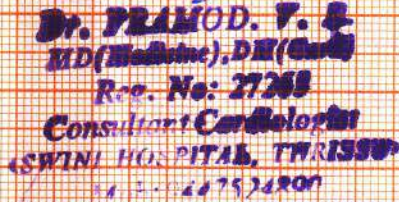 Dr. PRAMOD. V. K
MD(Medicine), DM(Card)
Reg. No: 27268
Consultant Cardiologist
ASWINI HOSPITAL, THRISSUR